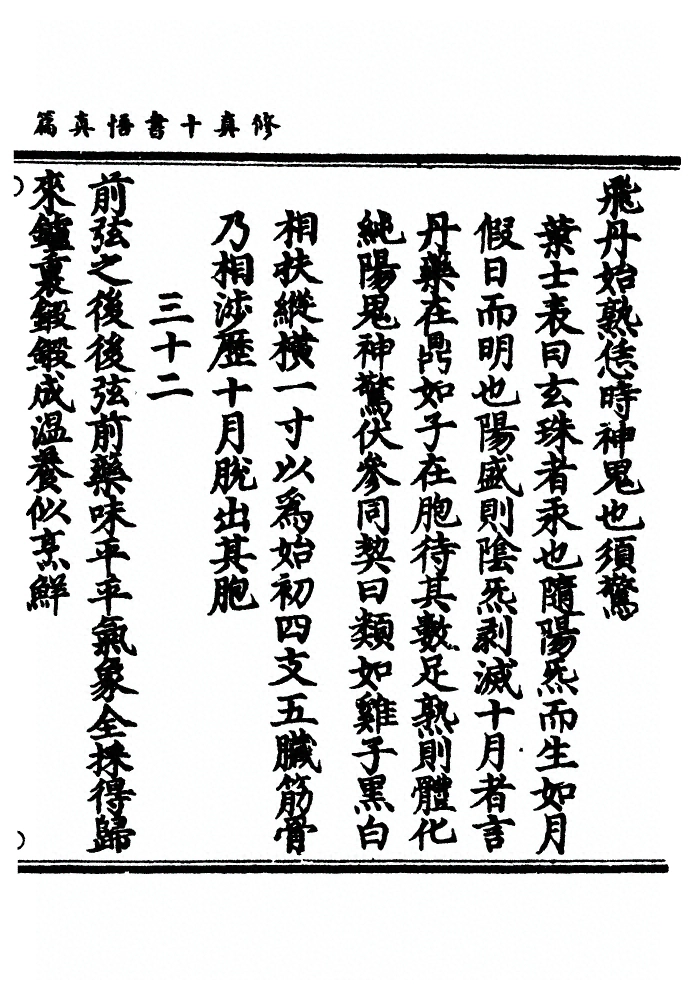 修真十書悟真篇
飛丹始熟恁時神鬼也須驚
葉士表曰玄珠者汞也隨陽炁而生如月
假日而明也陽盛則陰炁剥滅十月者言
丹藥在鼎如子在胞待其數足熟則體化
純陽鬼神驚伏參同契曰類如雞子黑白
相扶縱横一寸以爲始初四支五臟筋骨
乃相涉歷十月脫出其胞
三十二
前弦之後後弦前藥味平平氣象全採得歸
來鑪裏鍛鍛成温養似烹鮮